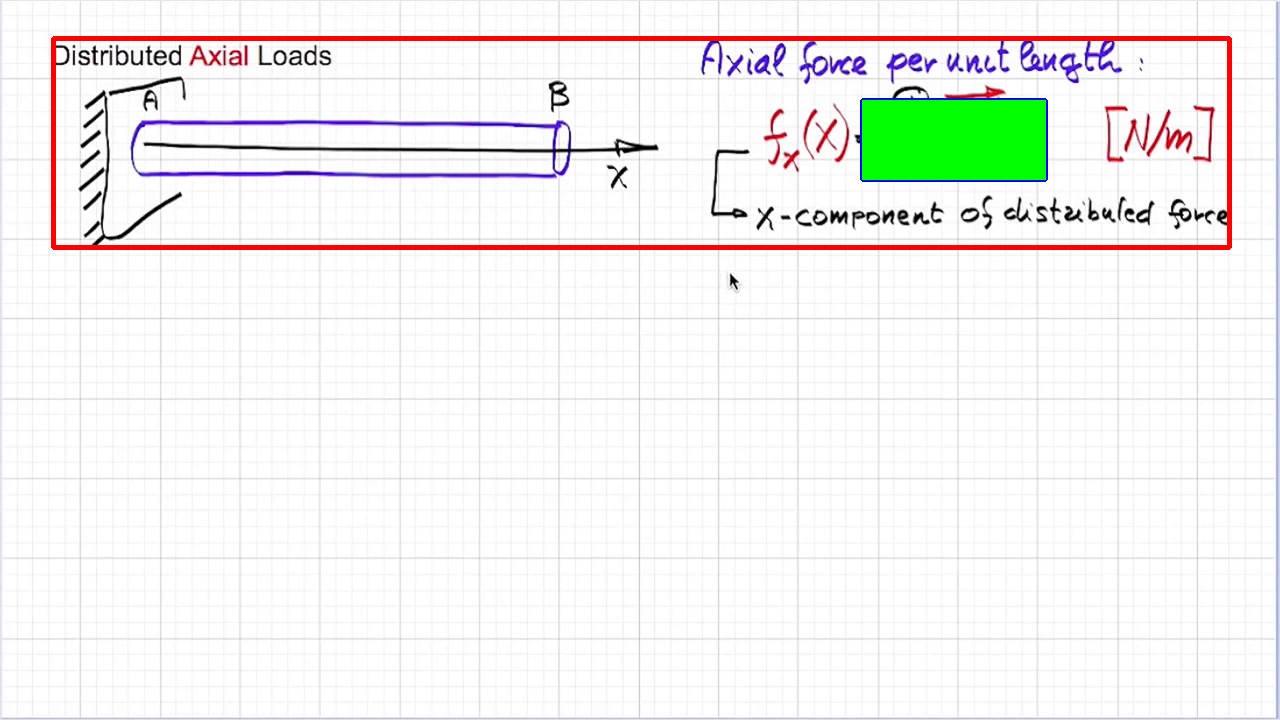 Distributed Axial Loads
Axial force per unit length :
A
B
x
fx(x)
[N/m]
x-component of distributed force